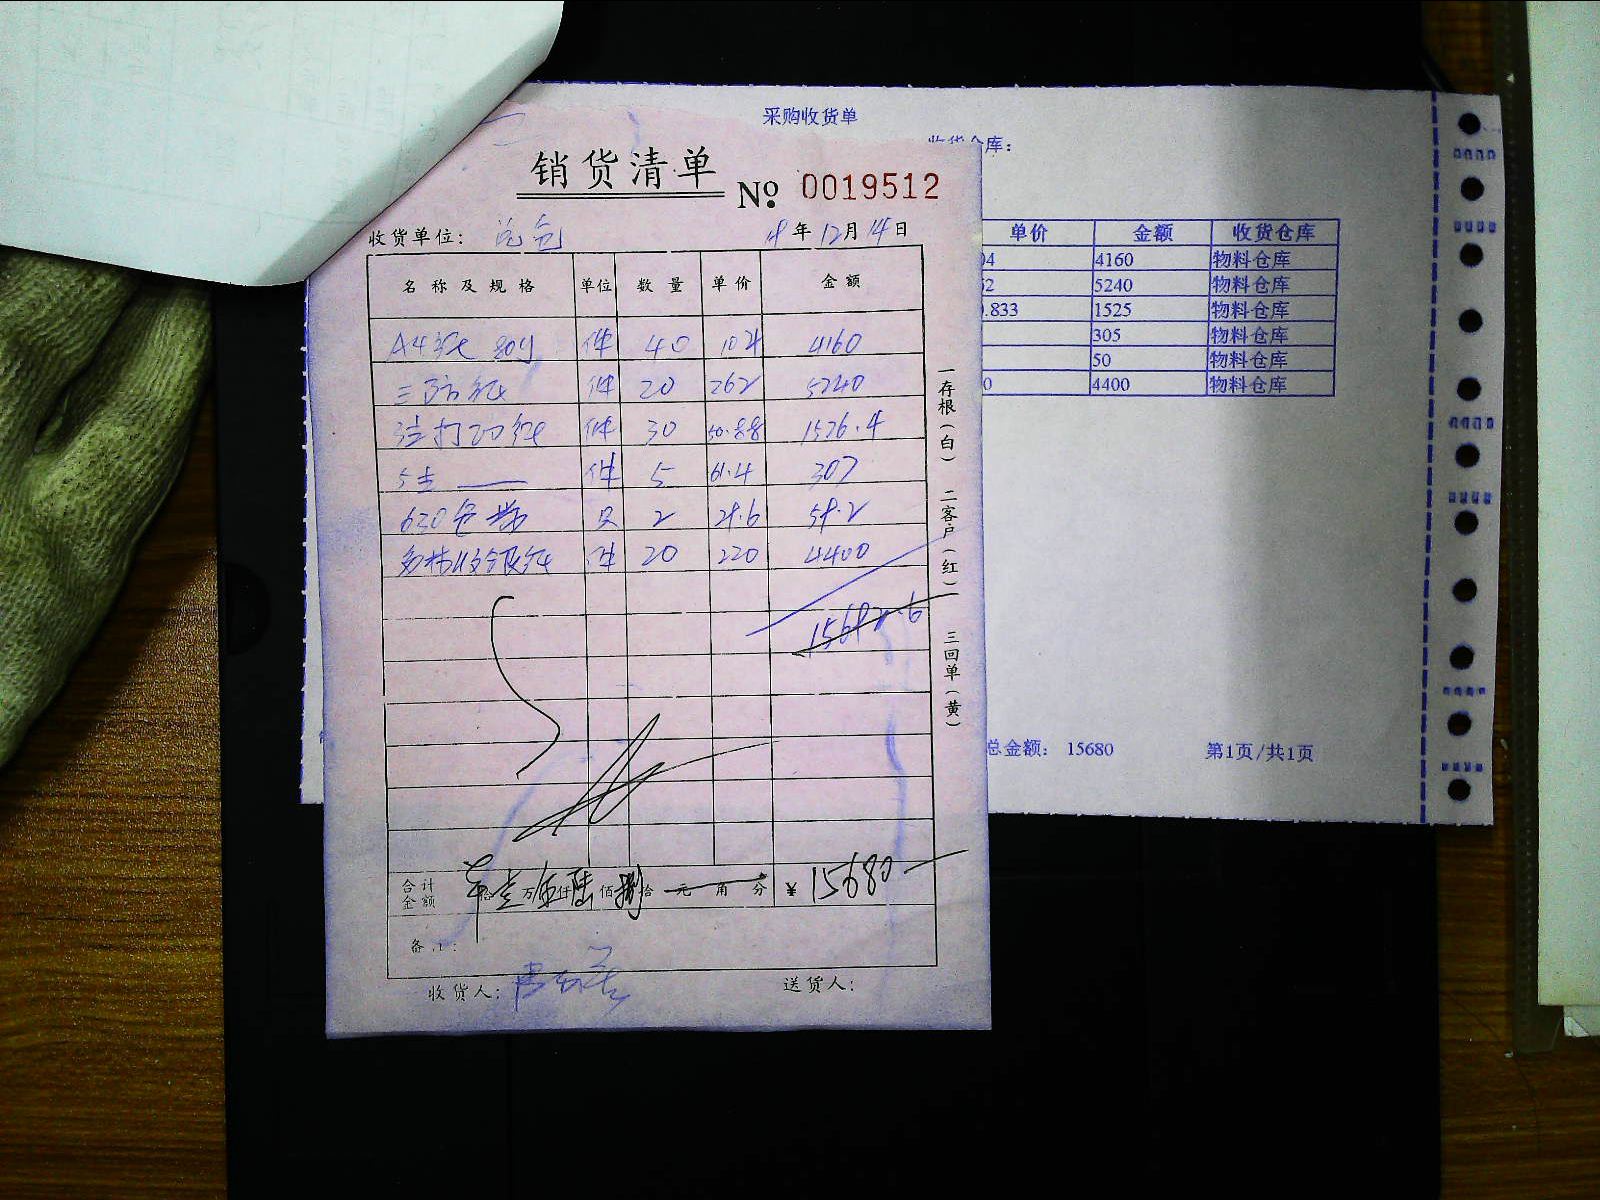 采购收货单
收货仓库：
单价 金额 收货仓库
04 4160 物料仓库
62 5240 物料仓库
0.833 1525 物料仓库
305 物料仓库
50 物料仓库
0 4400 物料仓库
总金额： 15680 第1页/共1页
销货清单
No. 0019512
收货单位：
年12月14日
名称及规格 单位 数量 单价 金额
A4纸 件 40 104 4160
三防纸 件 20 262 5240
件 30 50.88 1526.4
件 5 61.4 307
630色带 只 2 29.6 59.2
件 20 220 4400
15692.6
合计金额 拾壹万伍仟陆佰捌拾元角分 ¥15680
备注：
收货人： 送货人：
一存根（白） 二客户（红） 三回单（黄）